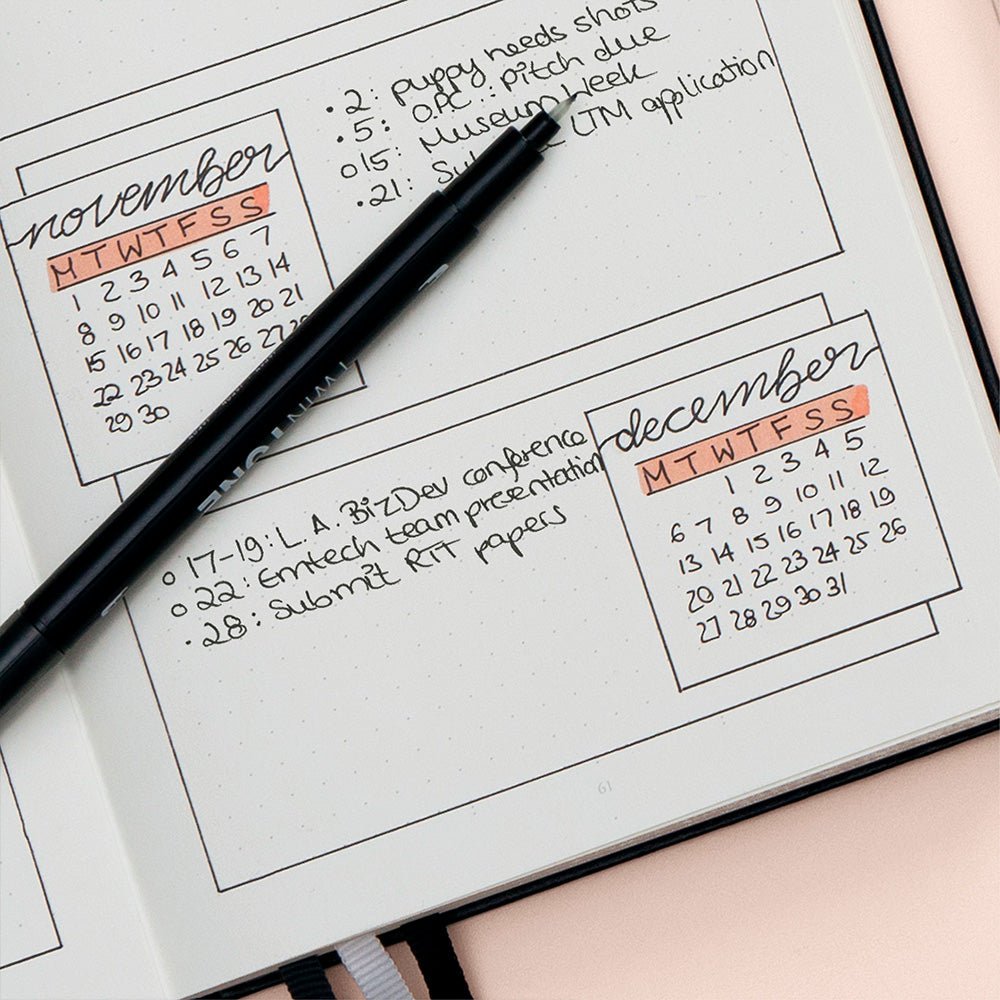 .2: puppy needs shots
.5: O.P.C.: pitch due
o15: Museum Week
.21: LTM application
november
M T W T F S S
1 2 3 4 5 6 7
8 9 10 11 12 13 14
15 16 17 18 19 20 21
22 23 24 25 26 27 28
29 30
TWINTONE
december
M T W T F S S
1 2 3 4 5
6 7 8 9 10 11 12
13 14 15 16 17 18 19
20 21 22 23 24 25 26
27 28 29 30 31
o 17-19: L.A. BizDev conference
o 22: Emtech team presentation
. 28: Submit RIT papers
61